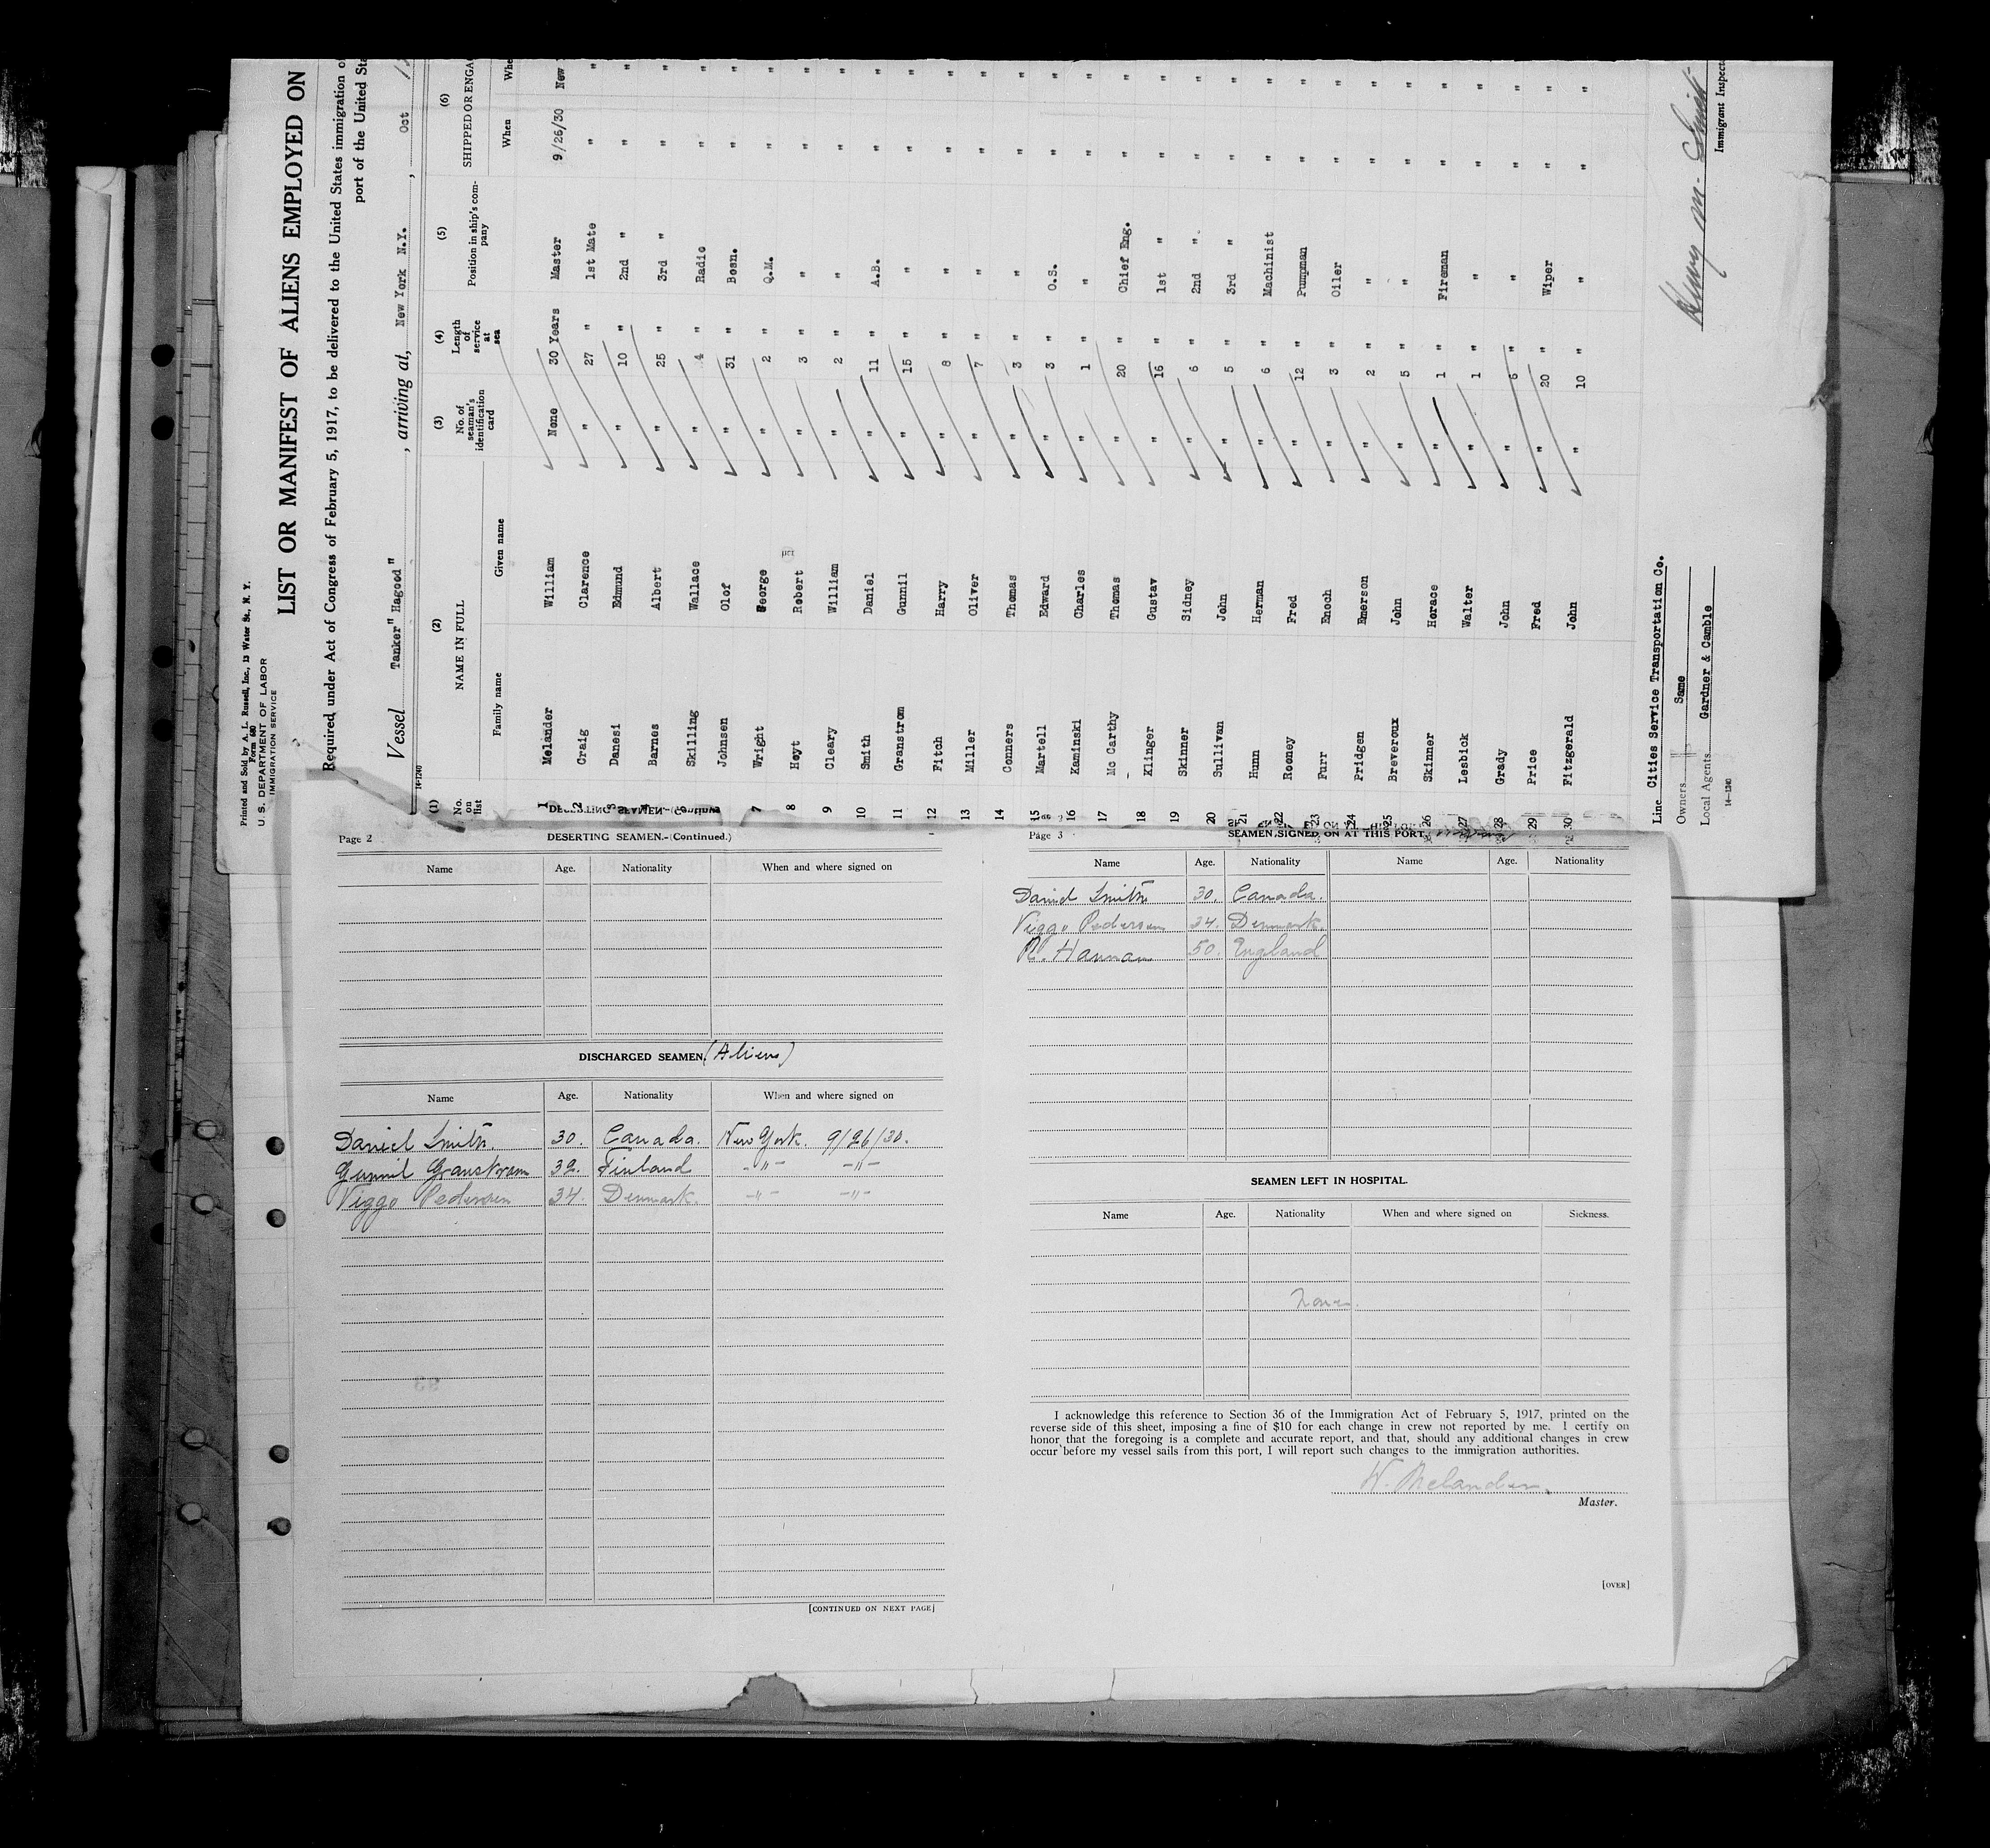 Printed and Sold by A. L. Russell, Inc., 13 Water St., N. Y.
Form 680
U. S. DEPARTMENT OF LABOR
IMMIGRATION SERVICE
LIST OR MANIFEST OF ALIENS EMPLOYED ON
Required under Act of Congress of February 5, 1917, to be delivered to the United States immigration
port of the United
Vessel Tanker "Hagood" , arriving at, New York N.Y. , Oct
14-1240
(1) (2) (3) (4) (5) (6)
No. on list NAME IN FULL No. of seaman's identification card Length of service at sea Position in ship's company SHIPPED OR
Family name Given name When
1 Melander William None 30 Years Master 9/26/30 New
2 Craig Clarence " 27 " 1st Mate " "
3 Danesi Edmund " 10 " 2nd " " "
Barnes Albert " 25 " 3rd " " "
Skilling Wallace " 4 " Radio " "
Johnsen Olof " 31 " Bosn. " "
7 Wright George " 2 " Q.M. " "
8 Hoyt Robert " 3 " " " "
9 Cleary William " 2 " " " "
10 Smith Daniel " 11 " A.B. " "
11 Granstrom Gunnil " 15 " " " "
12 Fitch Harry " 8 " " " "
13 Miller Oliver " 7 " " " "
14 Conners Thomas " 3 " " " "
15 Martell Edward " 3 " O.S. " "
16 Kaminski Charles " 1 " " " "
17 Mc Carthy Thomas " 20 " Chief Eng. " "
18 Klinger Gustav " 16 " 1st " " "
19 Skinner Sidney " 6 " 2nd " " "
20 Sullivan John " 5 " 3rd " " "
21 Hunn Herman " 6 " Machinist " "
22 Rooney Fred " 12 " Pumpman " "
23 Furr Enoch " 3 " Oiler " "
24 Pridgen Emerson " 2 " " " "
25 Breveroux John " 5 " " " "
26 Skinner Horace " 1 " Fireman " "
27 Lesbick Walter " 1 " " " "
28 Grady John " 6 " " " "
29 Price Fred " 20 " Wiper " "
30 Fitzgerald John " 10 " " " "
Line Cities Service Transportation Co.
Owners Same
Local Agents Gardner & Camble
14-1240
Immigrant
Page 2 DESERTING SEAMEN.-(Continued.)
Name Age. Nationality When and where signed on
DISCHARGED SEAMEN. (Aliens)
Name Age. Nationality When and where signed on
Daniel Smith. 30. Canada. New York. 9/26/30.
Gunnil Granstrom 32. Finland -"- -"-
Viggo Pedersen 34. Denmark. -"- -"-
[CONTINUED ON NEXT PAGE]
Page 3 SEAMEN SIGNED ON AT THIS PORT.
Name Age. Nationality Name Age. Nationality
Daniel Smith 30. Canada.
Viggo Pedersen 34. Denmark.
R. Hannan 50. England
SEAMEN LEFT IN HOSPITAL.
Name Age. Nationality When and where signed on Sickness.
None.
I acknowledge this reference to Section 36 of the Immigration Act of February 5, 1917, printed on the
reverse side of this sheet, imposing a fine of $10 for each change in crew not reported by me. I certify on
honor that the foregoing is a complete and accurate report, and that, should any additional changes in crew
occur before my vessel sails from this port, I will report such changes to the immigration authorities.
W. Melander.
Master.
[OVER]